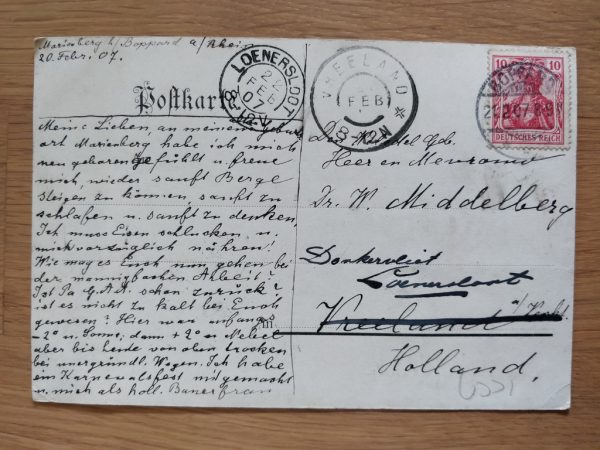 Marienberg b/ Boppard a/Rhein
20 Febr. 07.
Postkarte
Meine Lieben, an meinem geburts
ort Marienberg habe ich mich
neu geboren gefühlt u. freue
mich, wieder sanft Berge
steigen zu können, sanft zu
schlafen u. sanft zu denken,
Ich muss Eisen schlucken u.
mich vorzüglich nähren!
Wie mag es Euch nun gehen bei
der mannigfachen Arbeit?
Ist Pa schon zurück?
ist es nicht zu kalt bei Euch
gewesen? Hier war anfangs
-2° u. Sonne, dann +2° u. Nebel
aber bis heute von oben trocken
bei unergründl. Wegen. Ich habe
ein Karnevalsfest mitgemacht
u. mich als holl. Bauerfrau
LOENERSLOOT
22
FEB
07
8-12V
VREELAND
FEB
8-12N
10 10
DEUTSCHES REICH
BOPPARD
Den
Heer en Mevrouw
Dr. W. Middelberg
Donkervliet
Loenersloot
Vreeland
Holland.